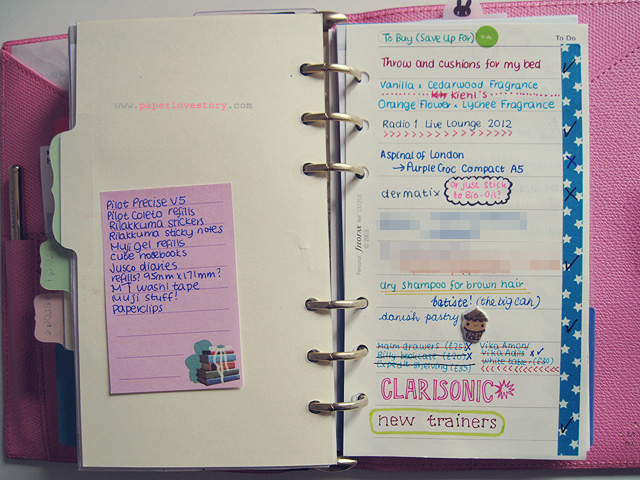 www.paperlovestory.com
Pilot Precise V5
Pilot Coleto refills
Rilakkuma stickers
Rilakkuma sticky notes
Muji gel refills
cube notebooks
Jusco diaries
refills? 95mm x 171mm?
MT washi tape
Muji stuff!
Paperclips
To Buy (Save Up For)
To Do
Throw and cushions for my bed
Vanilla & Cedarwood Fragrance
Kiehl's
Orange Flower & Lychee Fragrance
Radio 1 Live Lounge 2012
Aspinal of London
→ Purple Croc Compact A5
dermatix
Or just stick
to Bio-Oil?
Personal filofax Ref
© 2003
dry shampoo for brown hair
batiste! (the big can)
danish pastry
Malm drawers (£25) x
Billy bookcase (£20) x
Expedit shelving (£35)
Vika Amon/
Vika Adils x ✓
white table (£30)
CLARISONIC
new trainers